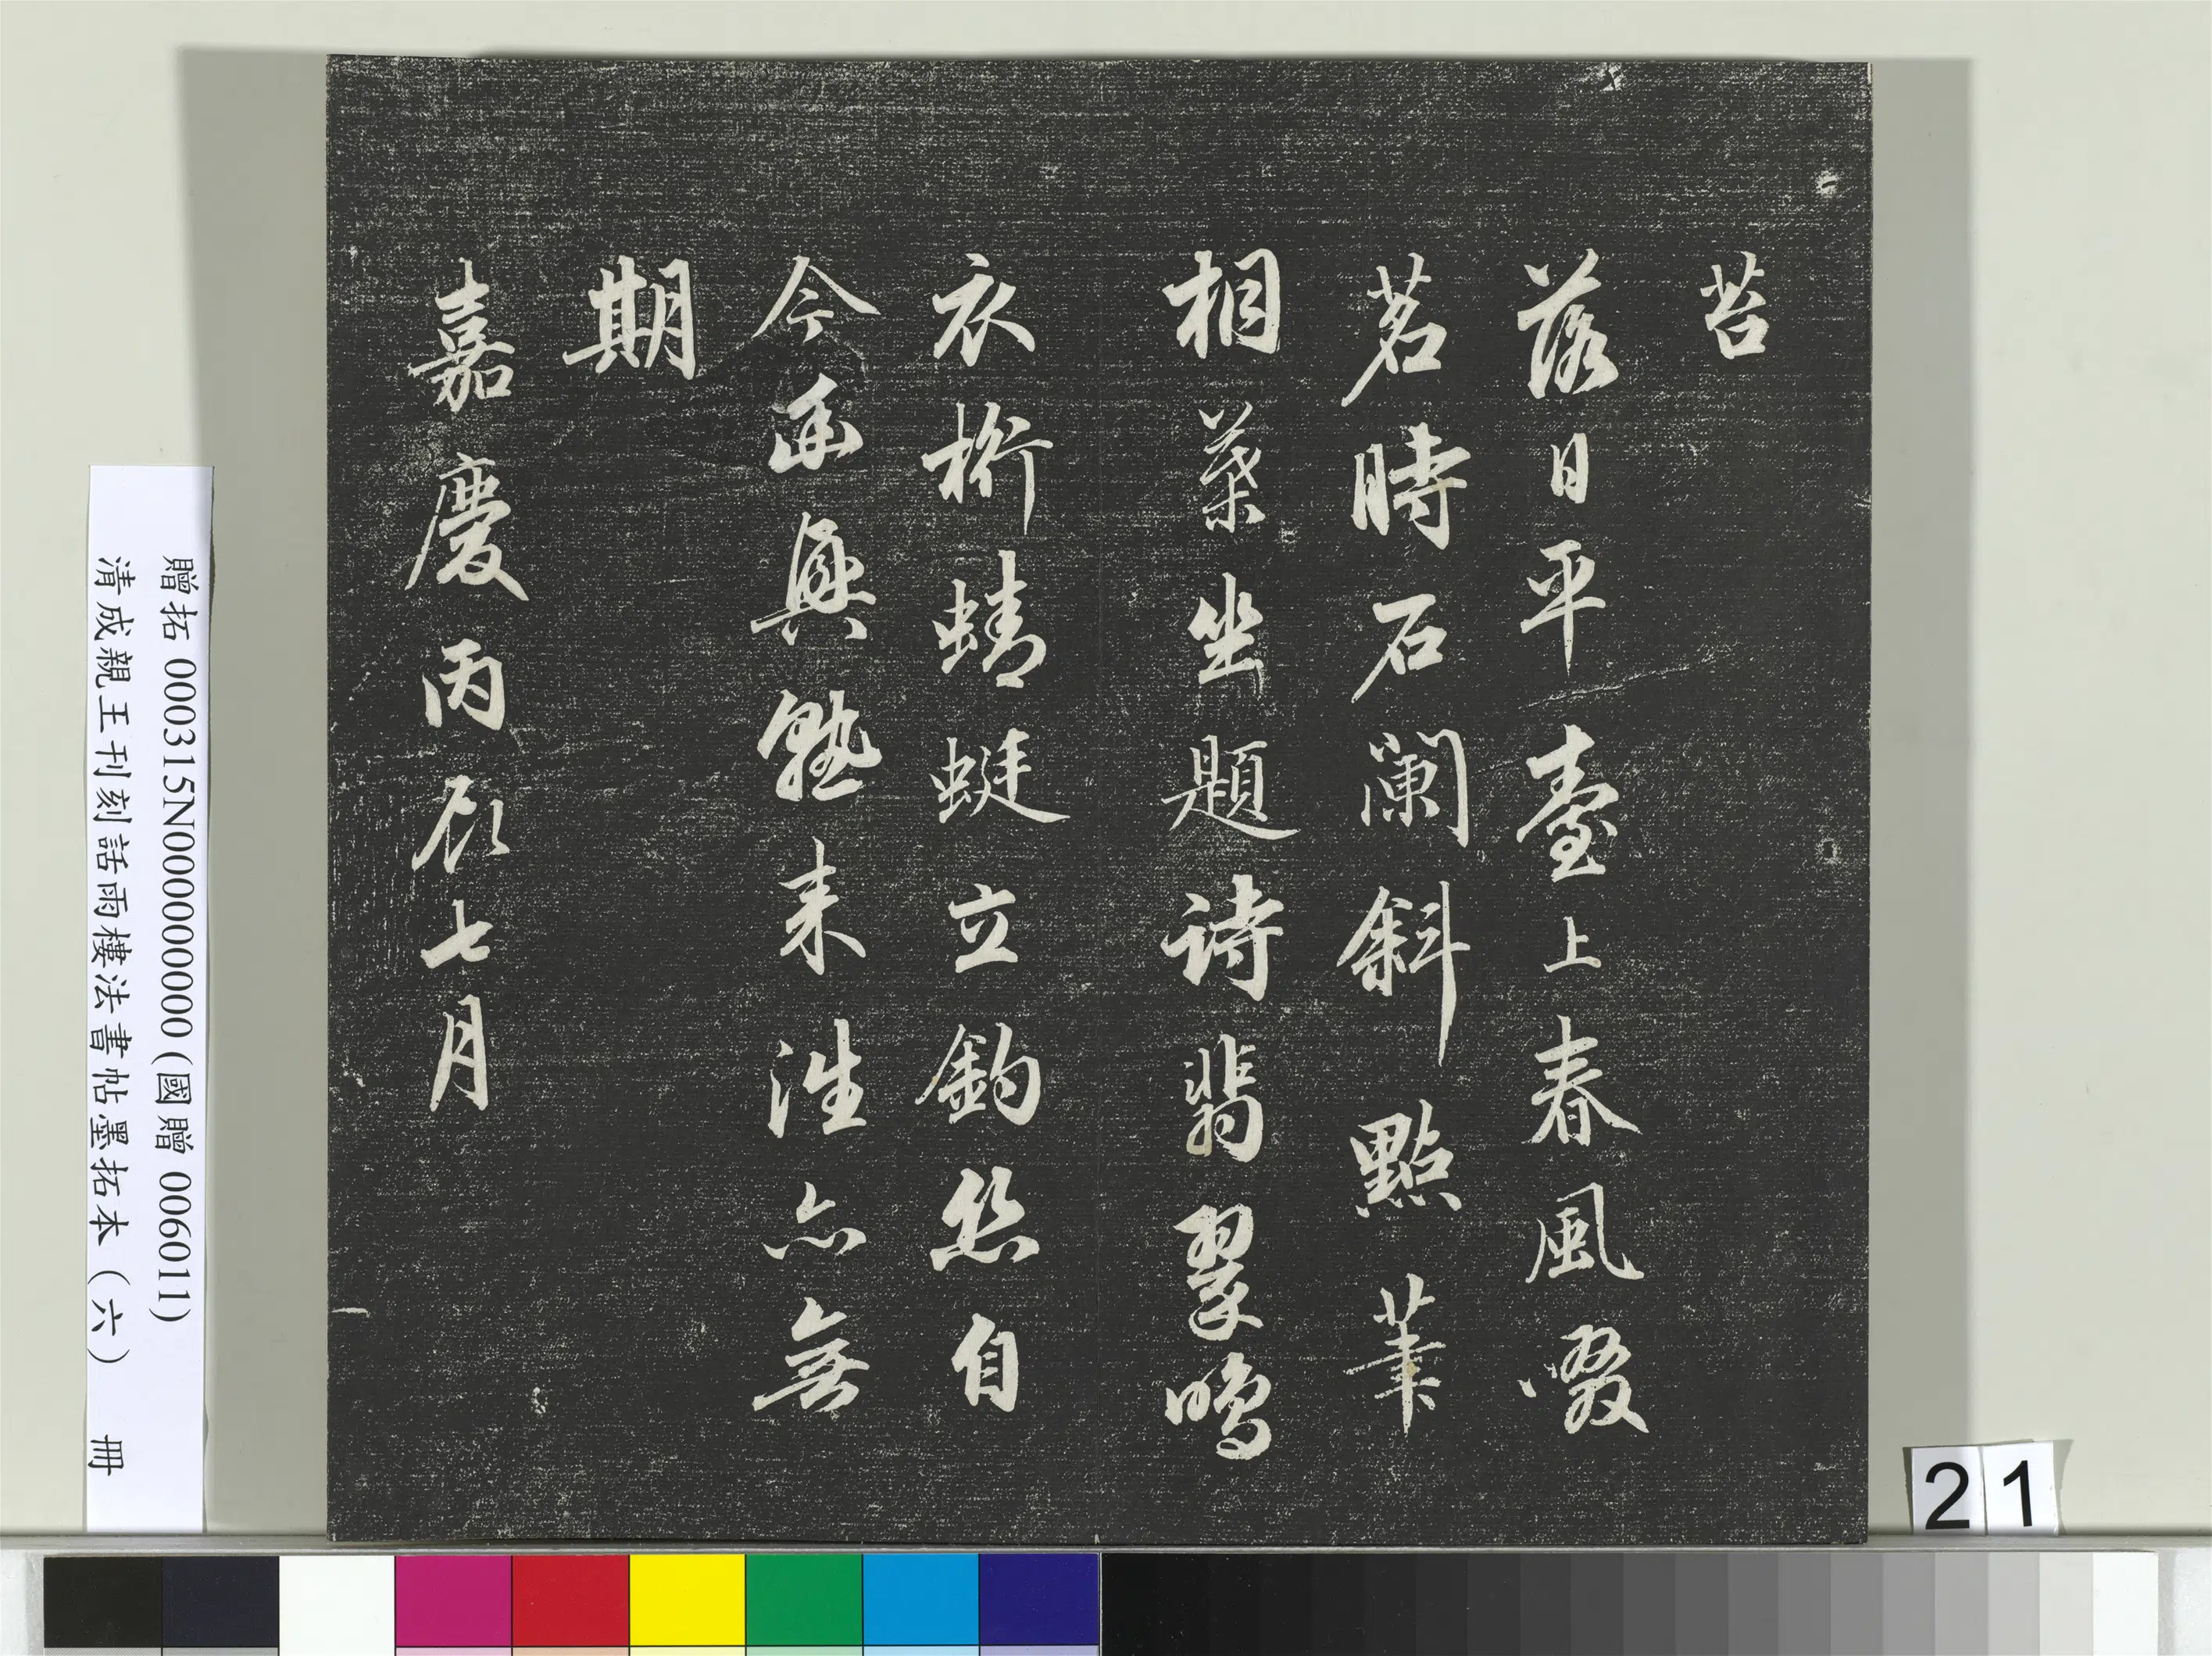 苔
落日平臺上春風啜
茗時石闌斜點筆
桐葉坐題詩翡翠鳴
衣桁蜻蜓立釣絲自
今幽興熟来往亦無
期
嘉慶丙辰七月
贈拓 000315N000000000 (國贈 006011)
清成親王刊刻話雨樓法書帖墨拓本（六） 冊
21